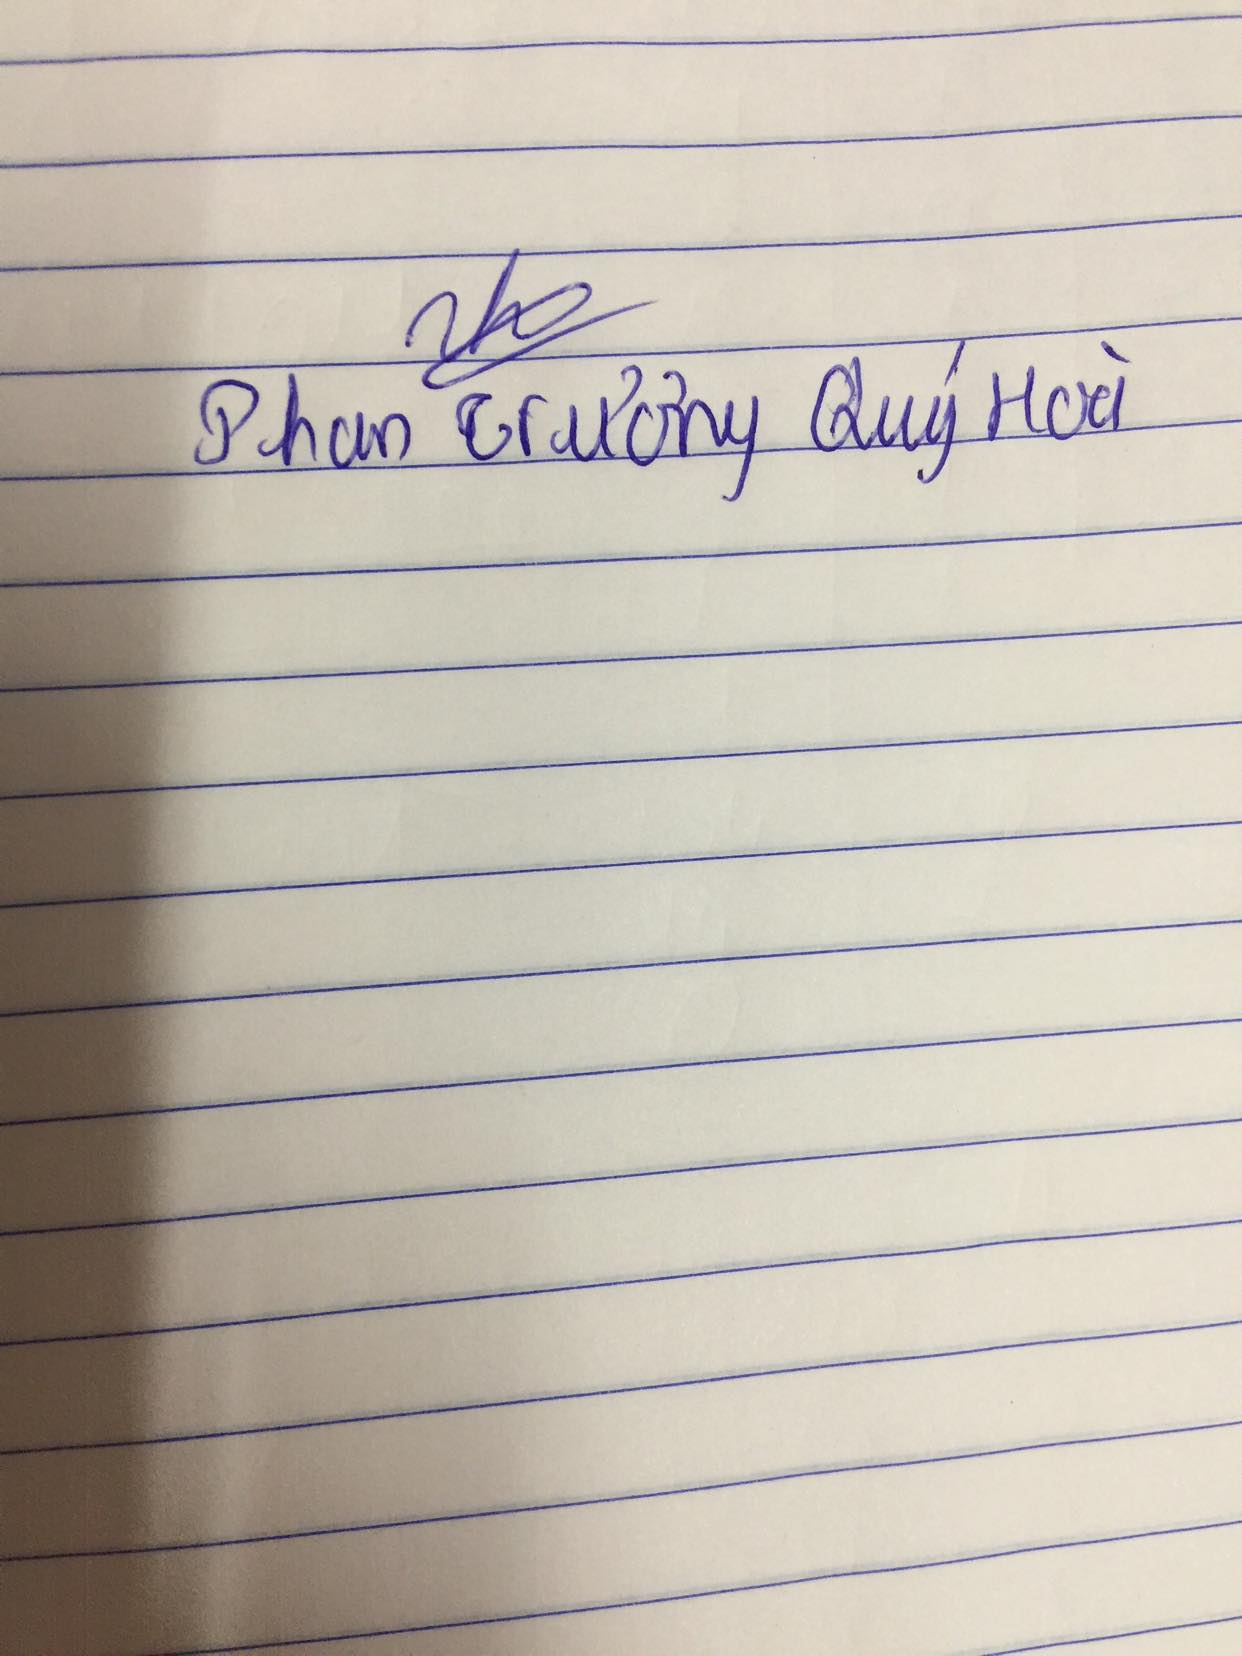 Phan Trương Quý Hoà